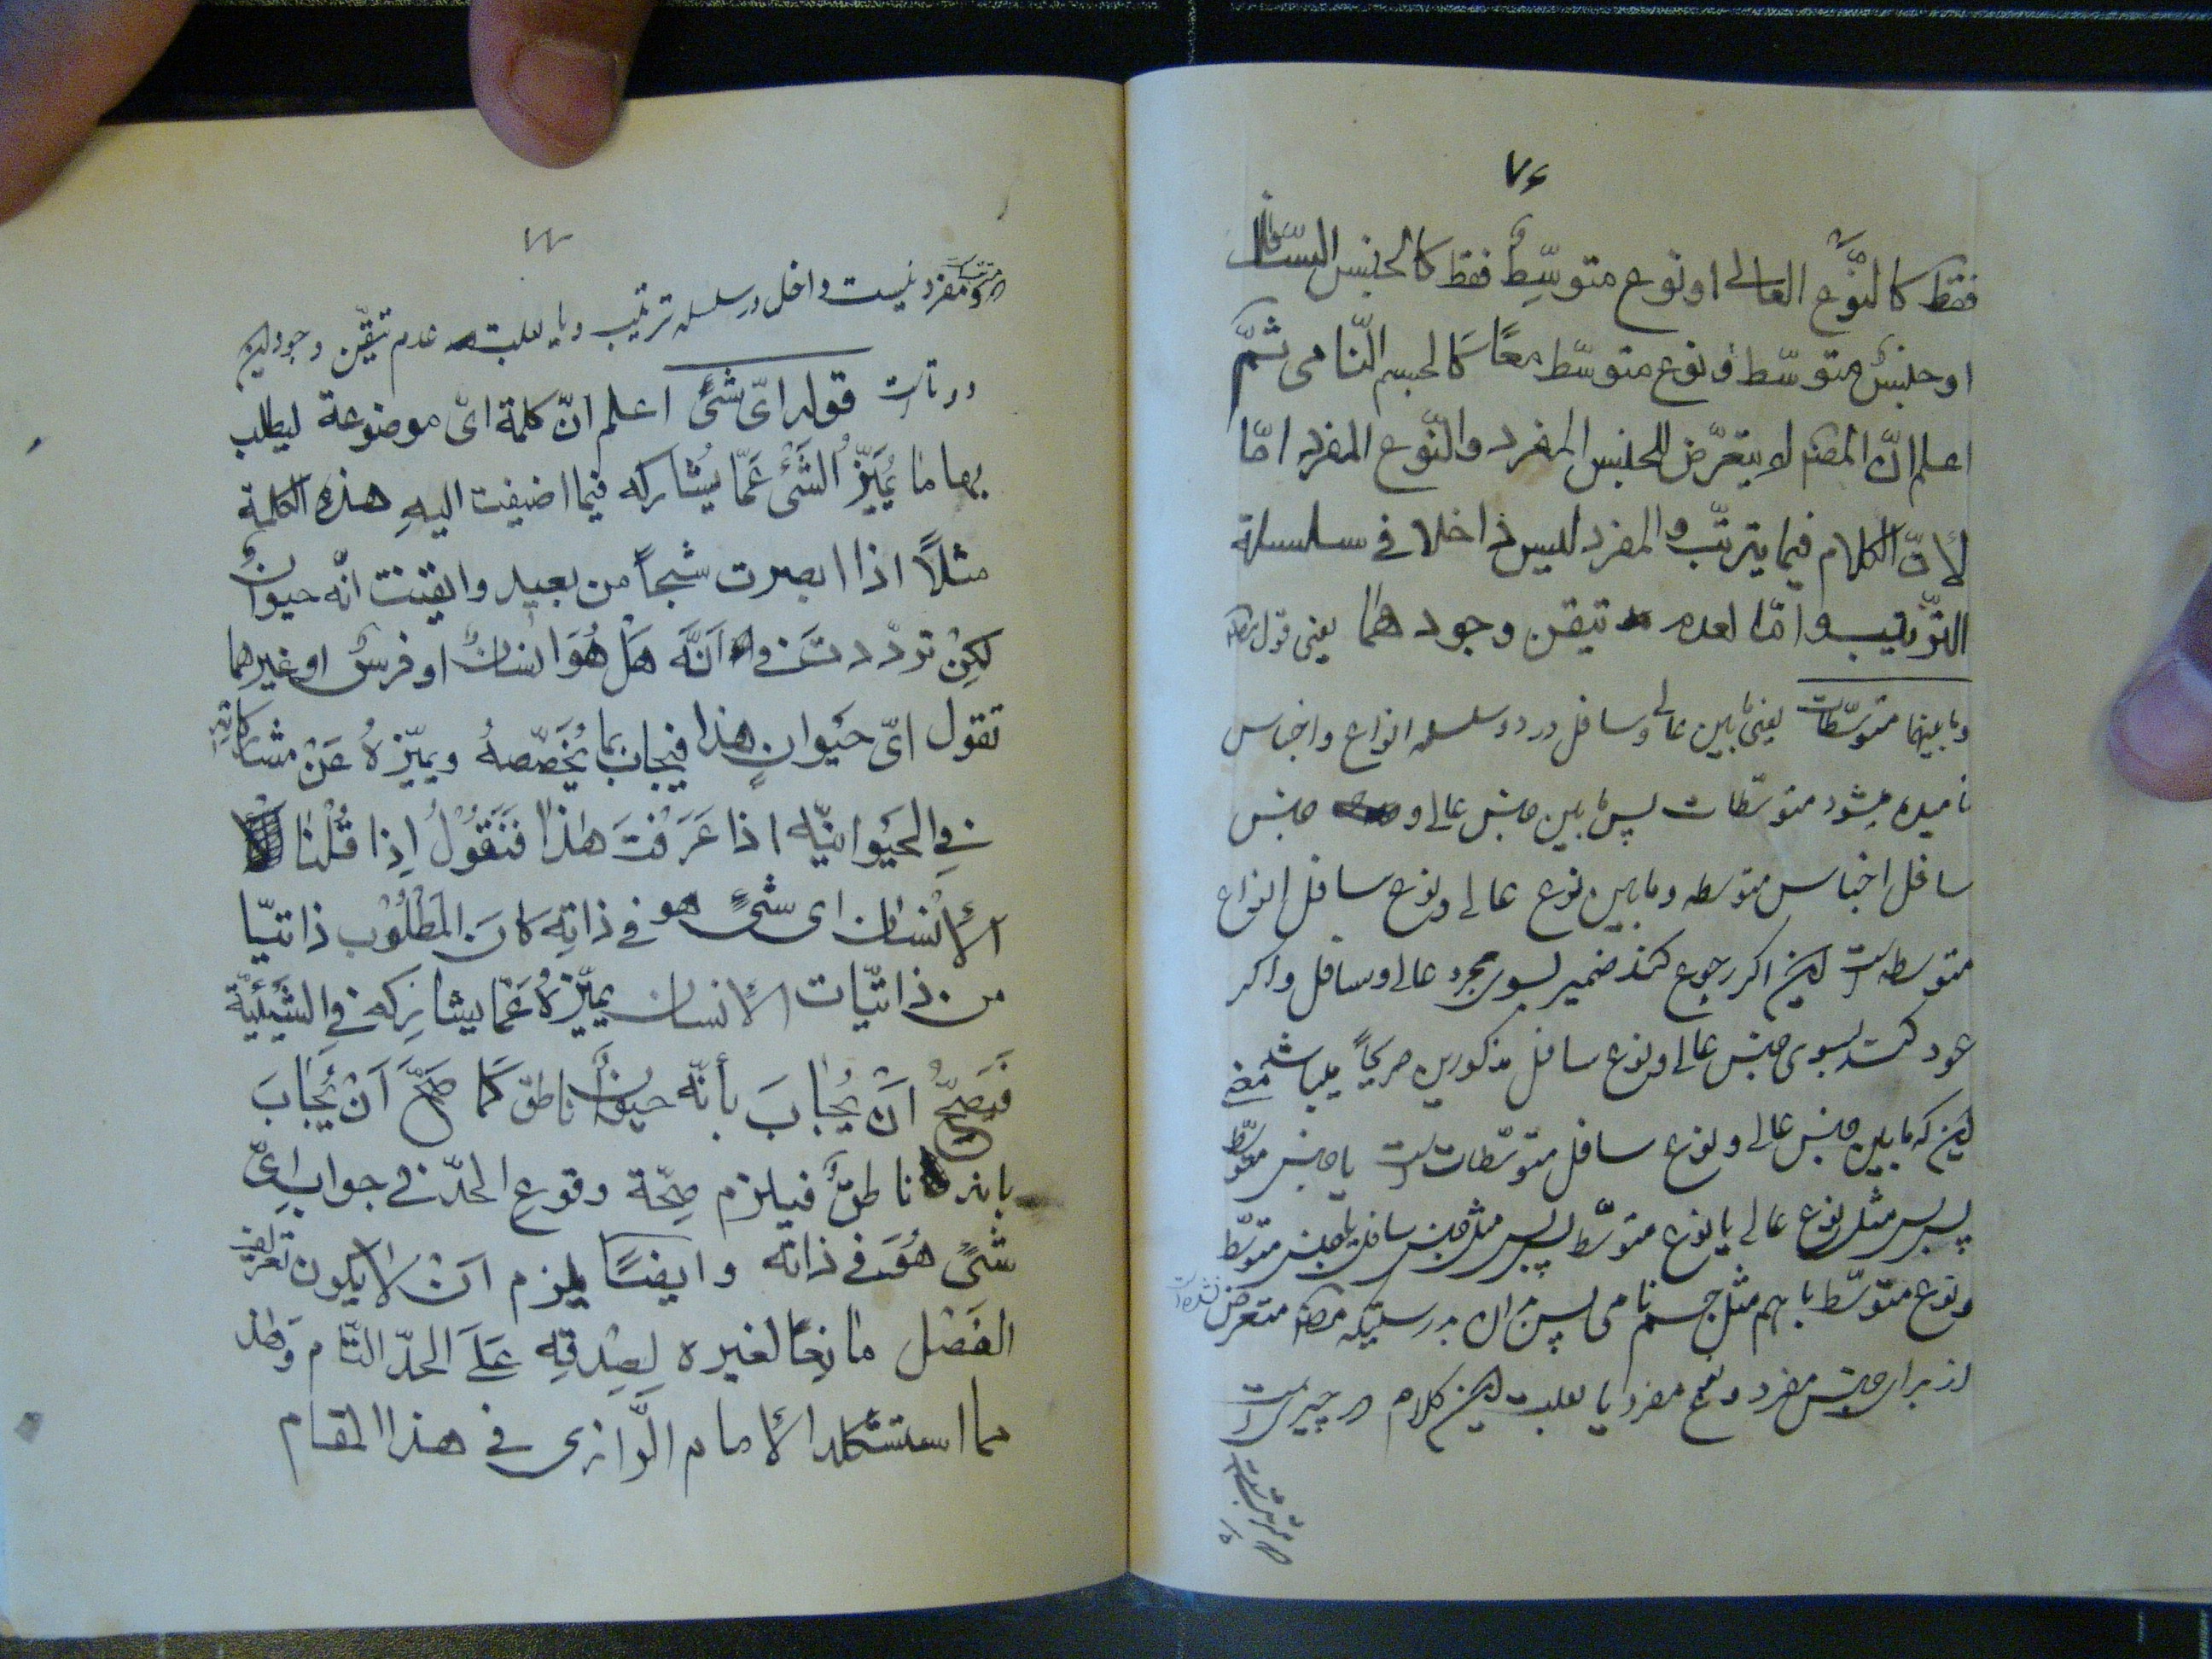 ۷۶
فقط كالنّوع العالى او نوع متوسّط فقط كالجنس السّافل
او جنس متوسّط و نوع متوسّط معًا كالجسم النّامى ثمّ
اعلم انّ المصنّف لم يتعرّض للجنس المفرد والنّوع المفرد امّا
لأنّ الكلام فيما يترتّب والمفرد ليس داخلا فى سلسلة
التّرتيب وامّا لعدم تيقن وجودهما يعنى قول مصنف
وما بينهما متوسّطات يعنى ما بين عالى و سافل در دو سلسله انواع و اجناس
ناميده ميشود متوسّطات پس ما بين جنس عالى و جنس
سافل اجناس متوسطه و ما بين نوع عالى و نوع سافل انواع
متوسطه است اين اگر رجوع كند ضمير بسوى مجرد عالى و سافل و اگر
عود كند بسوى جنس عالى و نوع سافل مذكورين صريحًا ميباشد معنى
اين كه ما بين جنس عالى و نوع سافل متوسّطات است يا جنس متوسّط
پس مثل نوع عالى يا نوع متوسّط پس مثل جنس سافل يا جنس متوسّط
و نوع متوسّط با هم مثل جسم نامى پس بدان بدرستيكه مصنف متعرض نشده است
از براى جنس مفرد و نوع مفرد يا بعلت اين كلام در چيزى است
كه مترتب است
۷۷
و مفرد نيست داخل در سلسله ترتيب و يا بعلت عدم تيقّن وجود اين
دوتاست قوله اىّ شئ اعلم انّ كلمة اىّ موضوعة ليطلب
بها ما يُميّزُ الشّئ عمّا يُشاركه فيما اضيفت اليهِ هذه الكلمة
مثلاً اذا ابصرت شبحاً من بعيد وايقنت انّه حيوانٌ
لكِنْ تردّدتَ فى اَنَّه هَلْ هُوَ انسانٌ او فرسٌ او غيرهما
تقول اىّ حَيوانٍ هذا فيجاب بما يُخَصّصهُ ويميّزهُ عَنْ مشاركاته
فِى الحَيوانيّه اذا عَرَفْتَ هٰذا فَنَقُوْلُ اِذا قُلْنا
اَلأنْسٰان اى شئٍ هو فى ذاتِه كانَ المَطْلُوْب ذاتيّا
من ذاتيّات الأنسان يميّزهُ عَمّا يشارِكه فِى الشَيئيّة
فَيَصِحُّ اَنْ يُجٰابَ بأنّه حيوٰانٌ ناطق كَما صَحَّ اَنْ يُجٰابَ
بانه ناطقٌ فيلزم صِحّة وقوعِ الحدّ فى جوابِ اىّ
شئٍ هُوَ فى ذاته وايضًا يلزم اَنْ لا يكون تعريف
الفَصْل مٰانِعًا لغيره لِصِدْقِهِ عَلَى الحدّ التّٰام وهٰذ
مما استشكله الأمام الرّازى فى هذا المقام